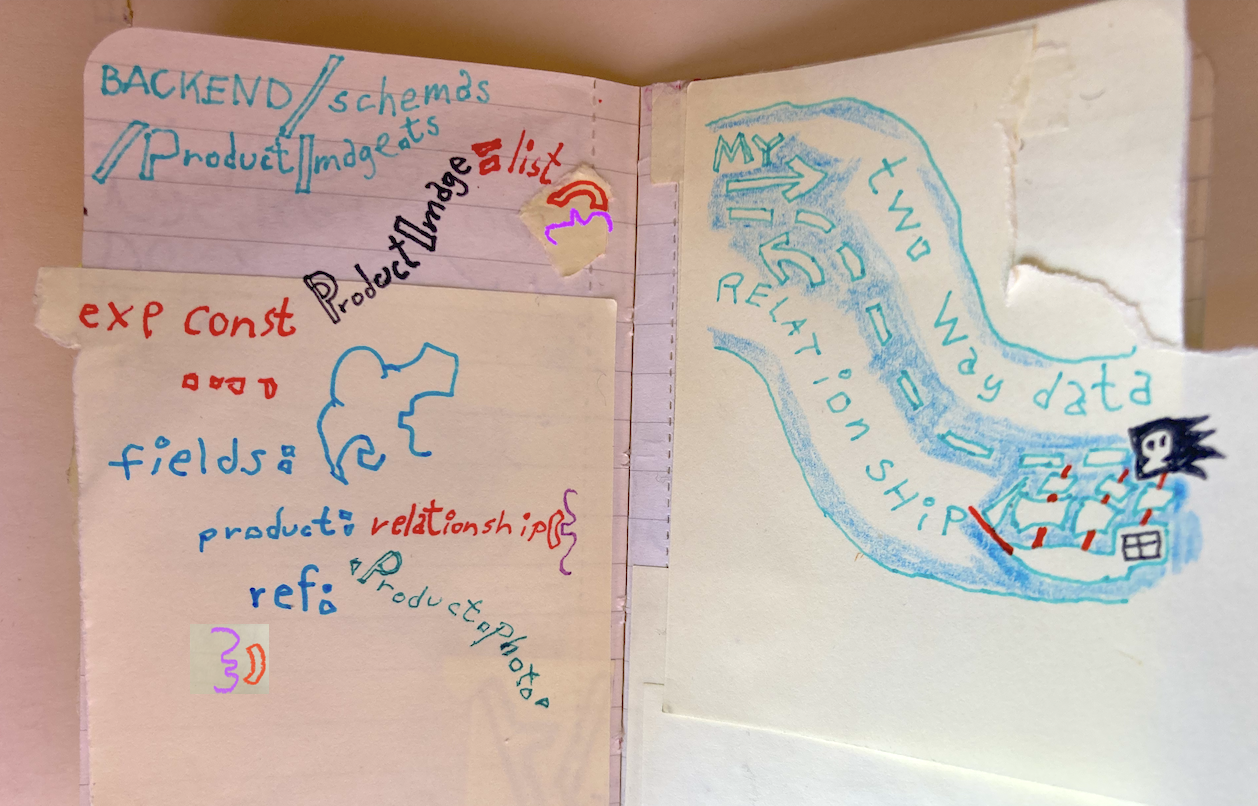 BACKEND/schemas
/ProductImage.ts
exp const ProductImage=list({
....
fields: {
product: relationship({
ref: 'Product.photo'
})
MY
two way data
RELATIONSHIP